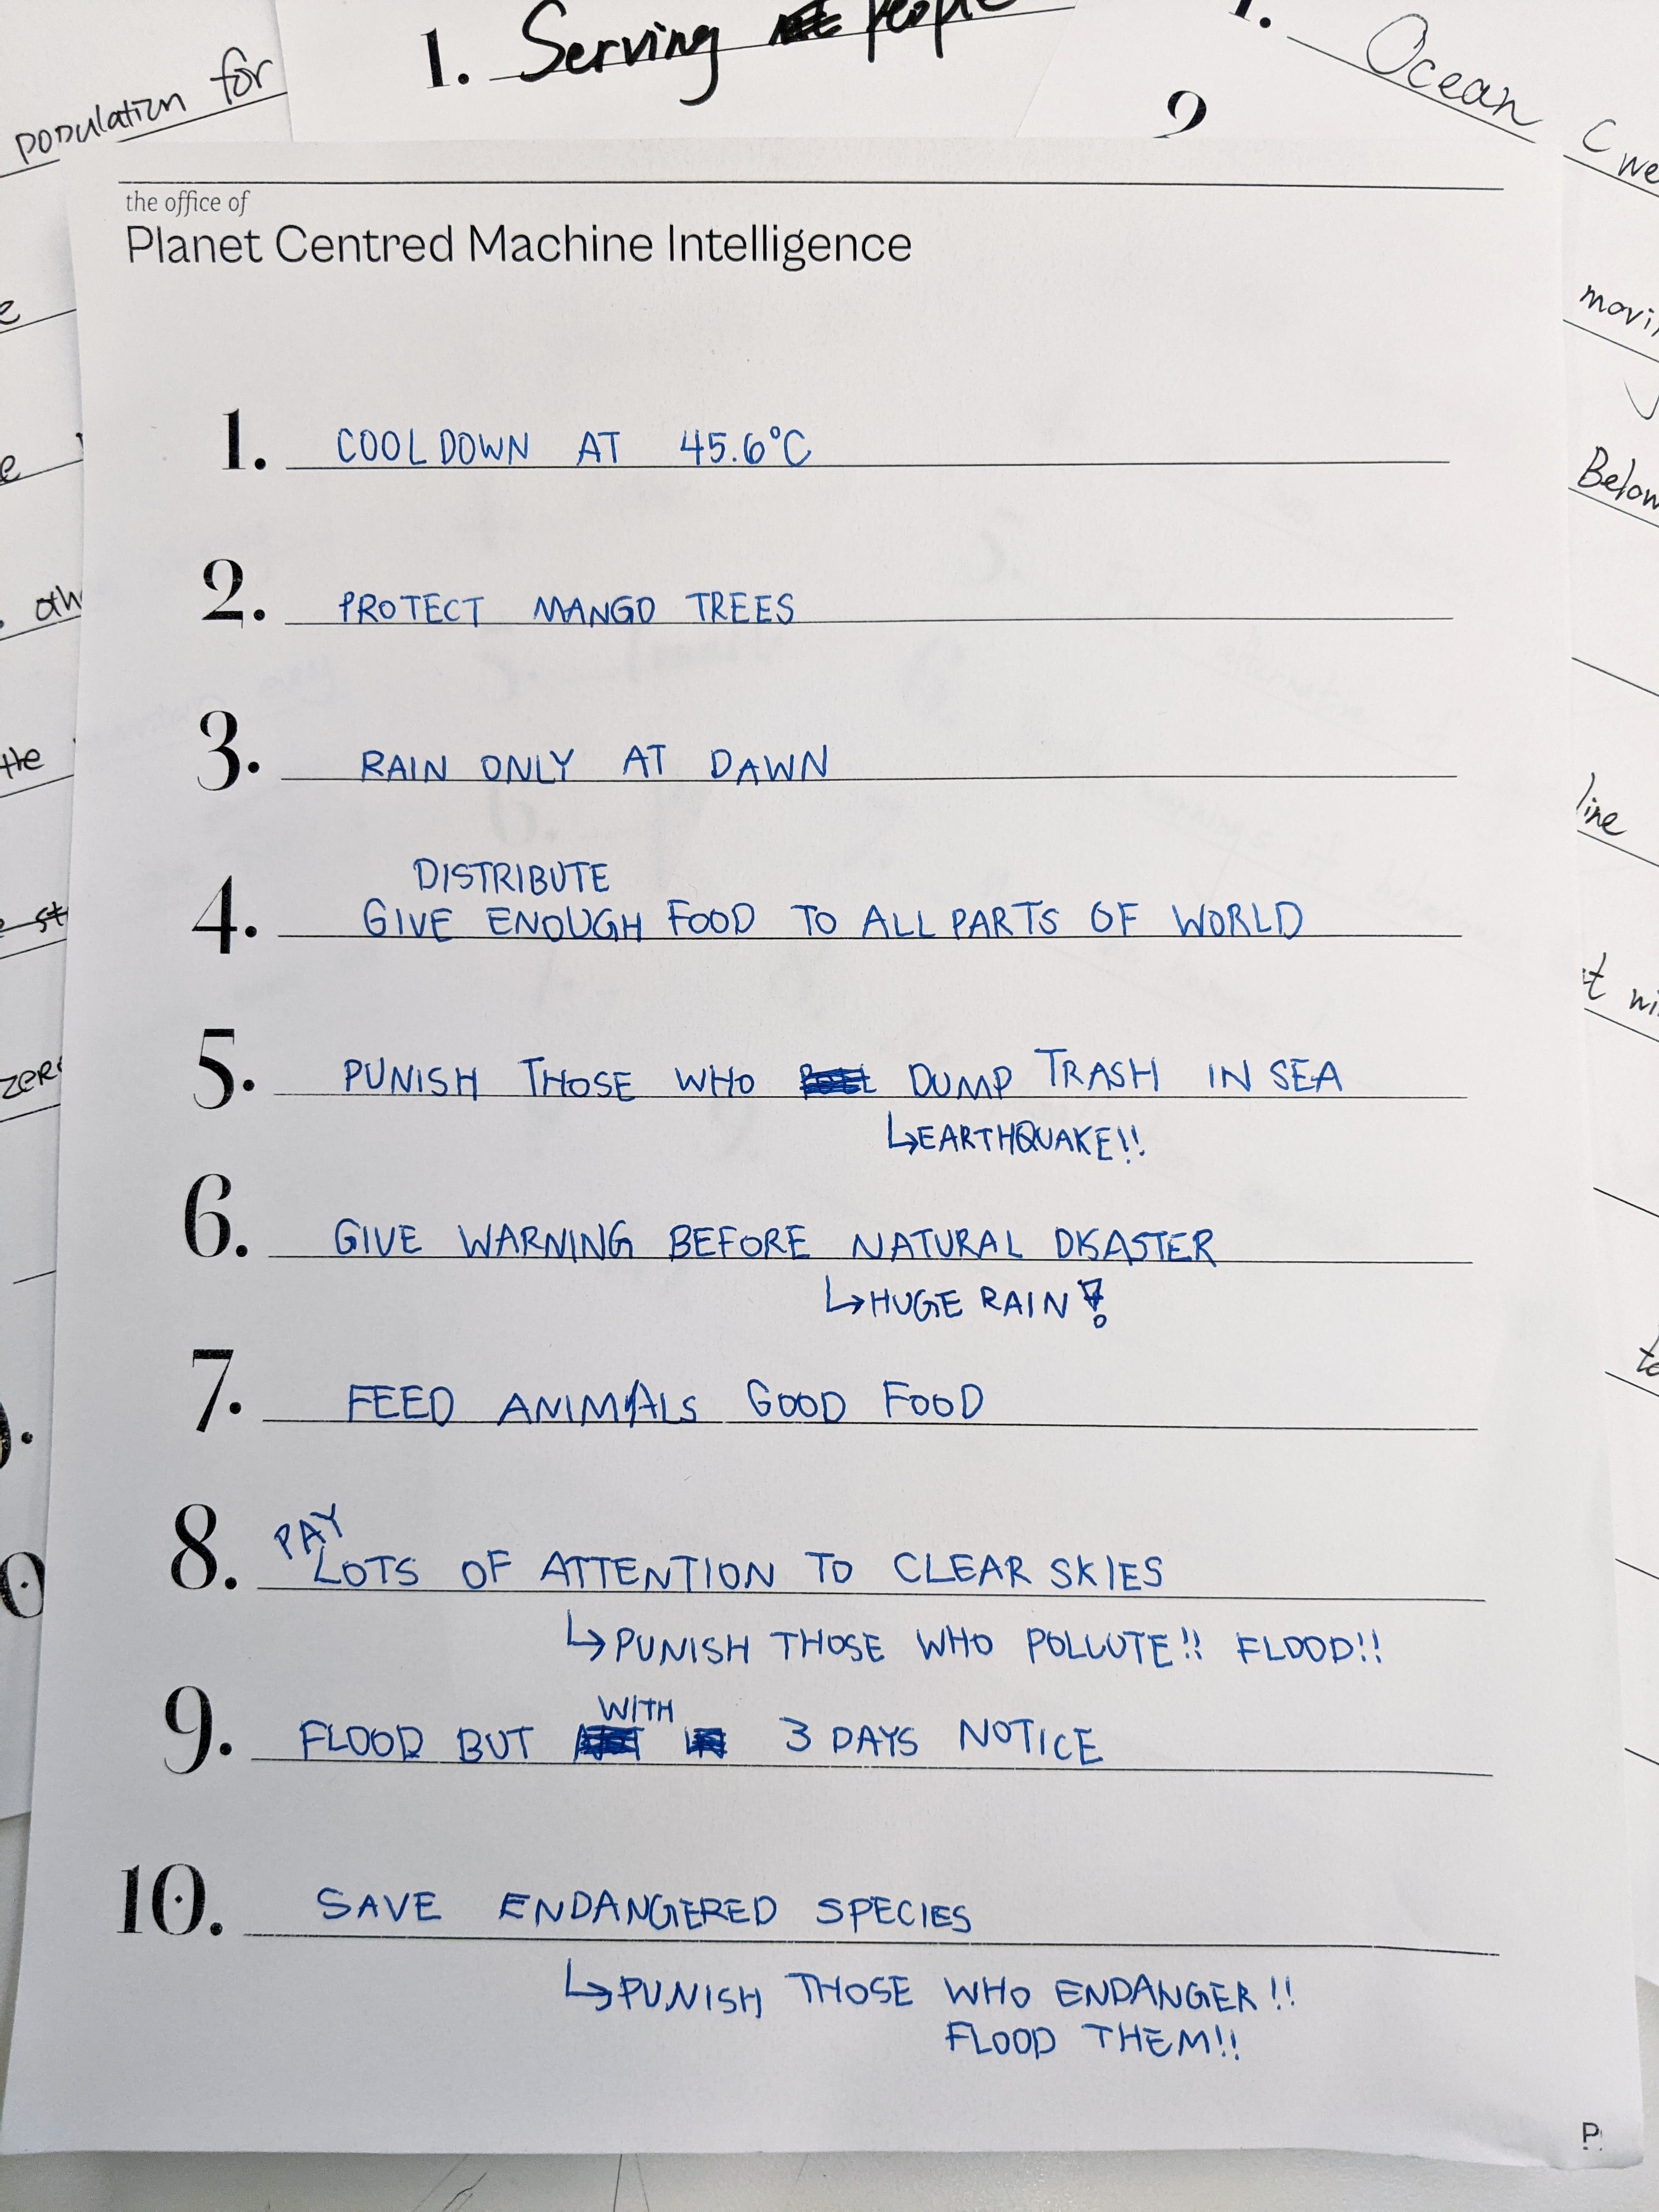 population for
1. Serving People
1. Ocean
2
C we
the office of
Planet Centred Machine Intelligence
movi
Below
line
1. COOL DOWN AT 45.6°C
2. PROTECT MANGO TREES
3. RAIN ONLY AT DAWN
DISTRIBUTE
4. GIVE ENOUGH FOOD TO ALL PARTS OF WORLD
5. PUNISH THOSE WHO DUMP TRASH IN SEA
↳EARTHQUAKE!!
6. GIVE WARNING BEFORE NATURAL DISASTER
↳HUGE RAIN!
7. FEED ANIMALS GOOD FOOD
PAY
8. LOTS OF ATTENTION TO CLEAR SKIES
↳PUNISH THOSE WHO POLLUTE!! FLOOD!!
WITH
9. FLOOD BUT 3 DAYS NOTICE
10. SAVE ENDANGERED SPECIES
↳PUNISH THOSE WHO ENDANGER!!
FLOOD THEM!!
P.